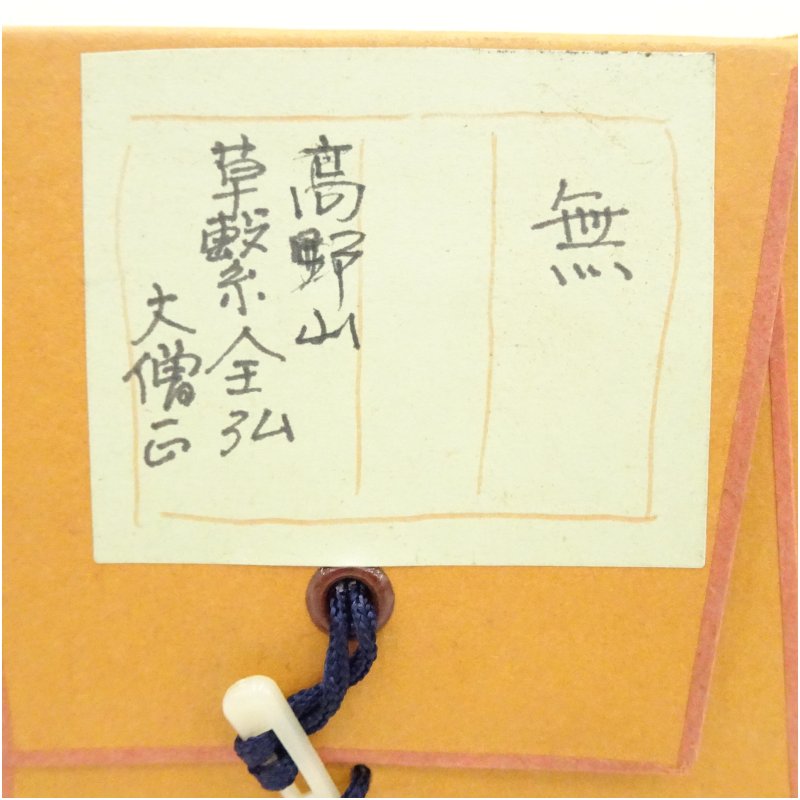 無
高野山
草繋全弘
大僧正